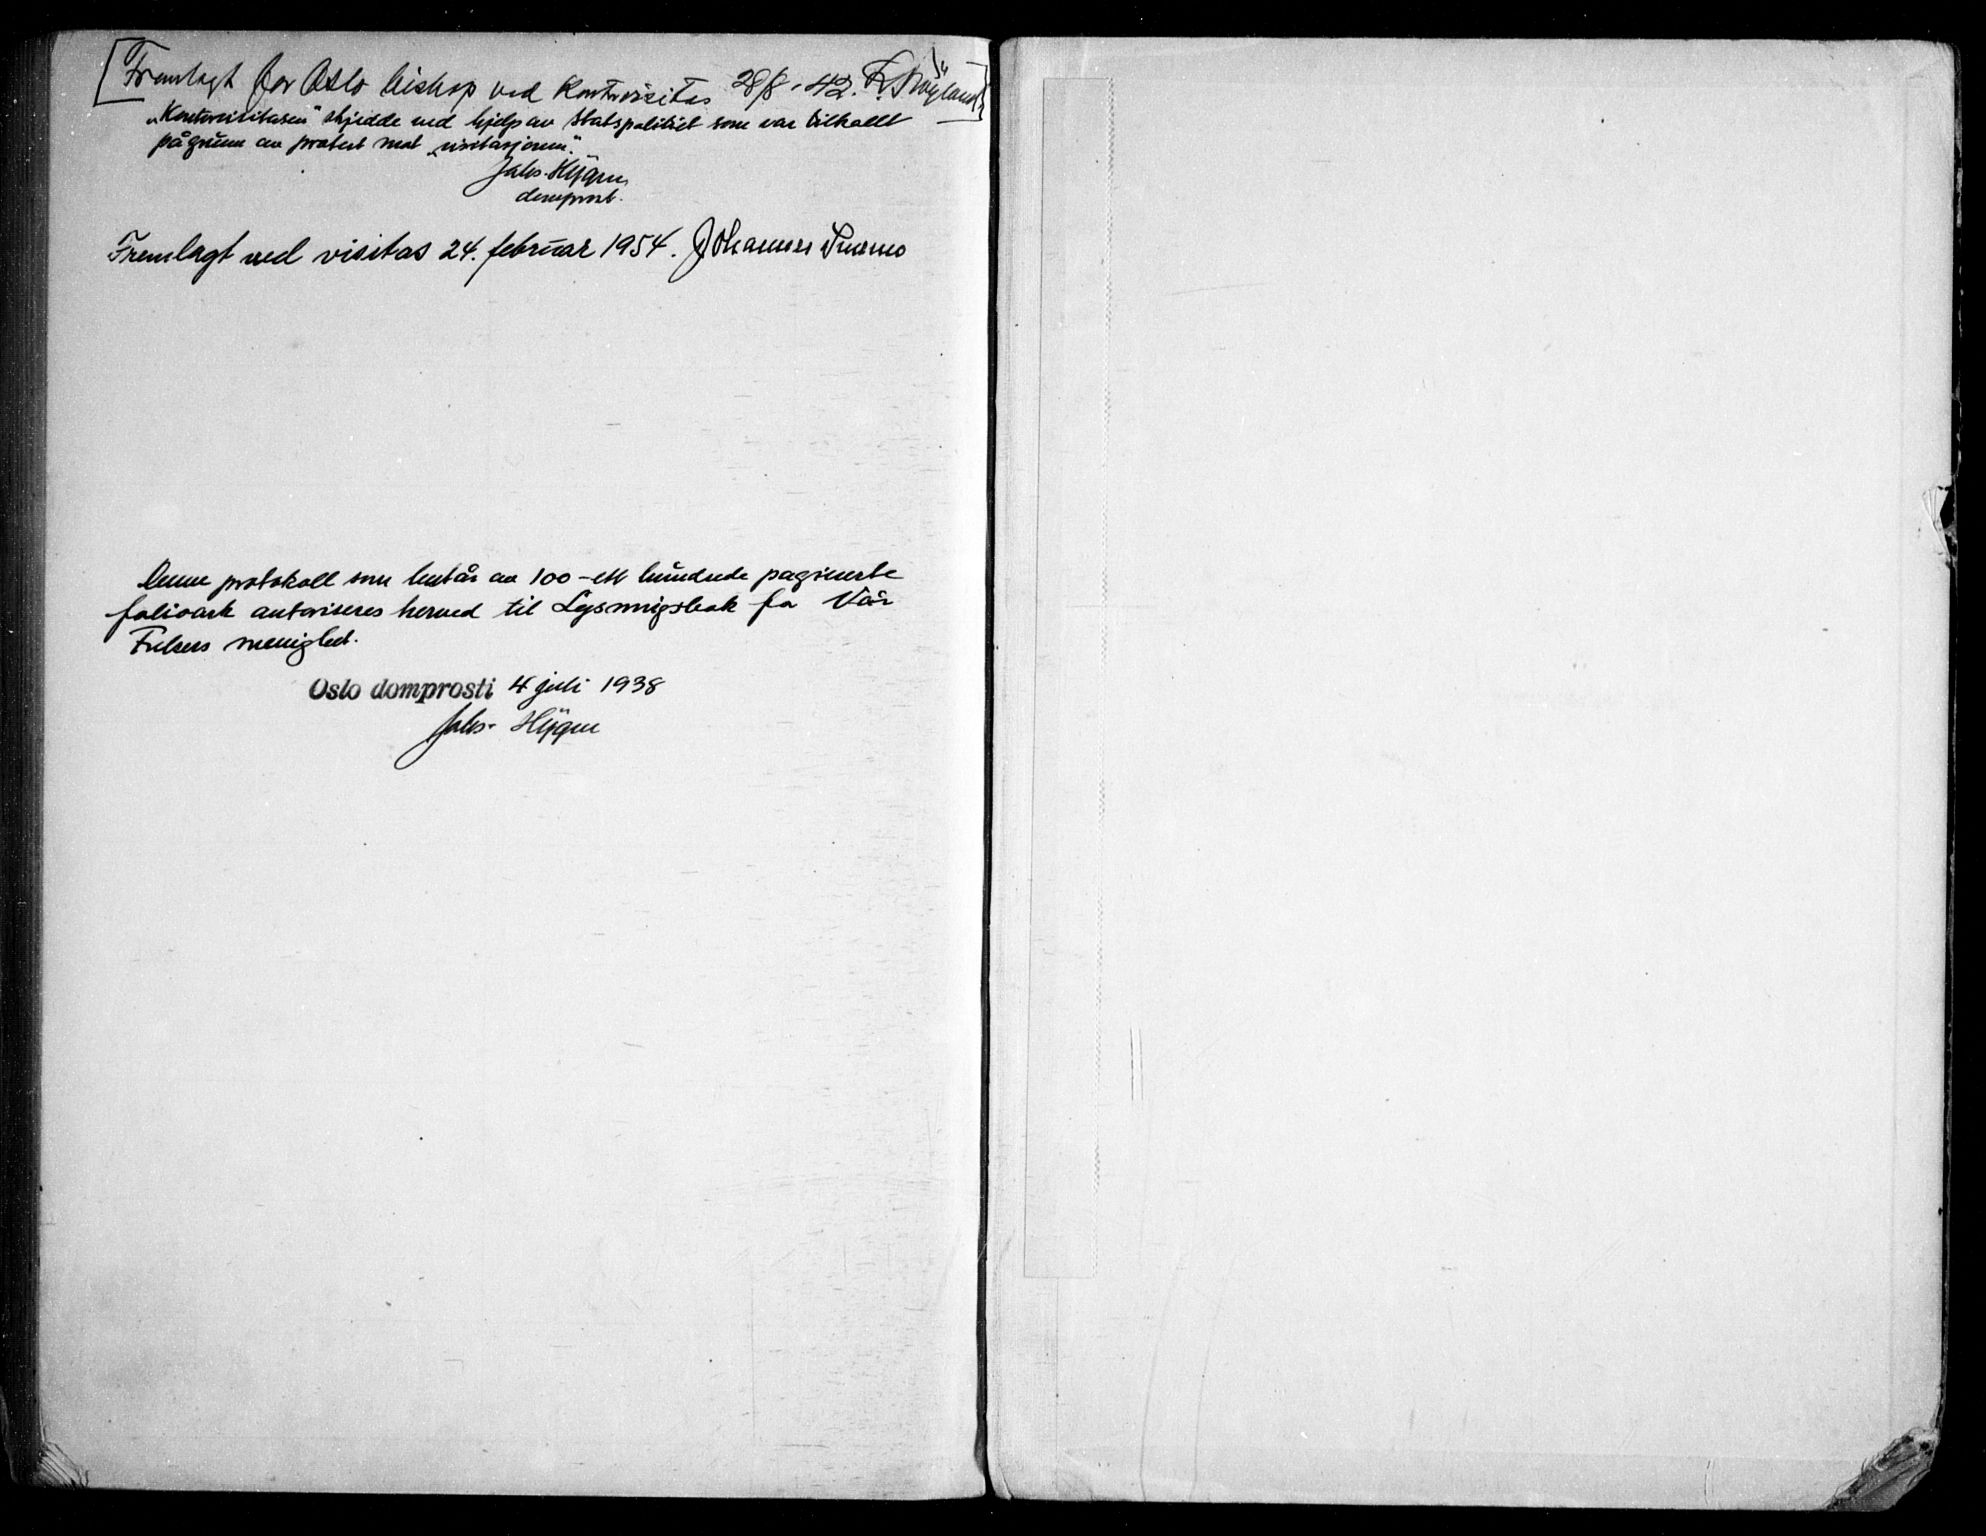 [Fremlagt for Oslo biskop ved Kontorvisitas 28/8-42.
„Kontorvisitasen" skjedde ved hjelp av Statspolitiet som var tilkallt
på grunn av protest mot „visitasjonen".
Johs. Hÿgen
domprost.
Fremlagt ved visitas 24. februar 1954. Johannes Smemo
Denne protokoll som består av 100 - ett hundrede paginerte
folioark autoriseres herved til Lysningsbok for Vår
Frelsers menighet.
Oslo domprosti 4 juli 1938
Johs. Hÿgen